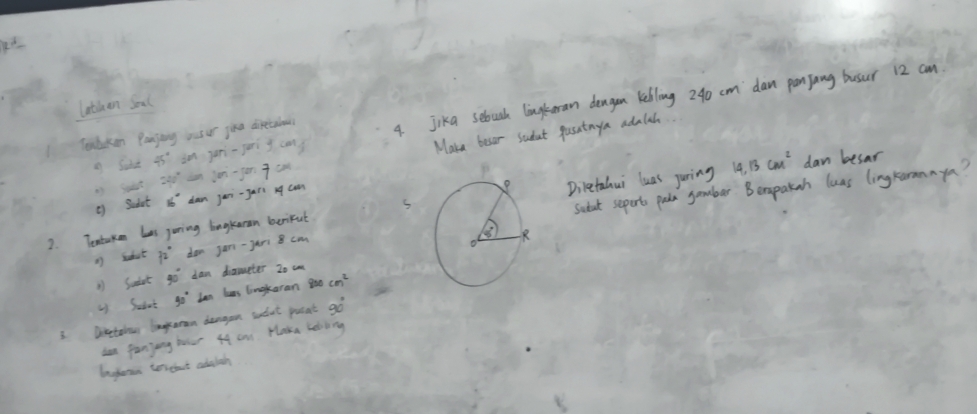 Latihan Soal
1. Tentukan Panjang busur jika diketahui
a) Sudut 45° dan jari-jari 9 cm
b) Sudut dan jari-jari 7 cm
c) Sudut dan jari-jari 14 cm
2. Tentukan Luas juring lingkaran berikut
a) Sudut 72° dan jari-jari 8 cm
b) Sudut 90° dan diameter 20 cm
c) Sudut 90° dan luas lingkaran 800 cm²
3. Diketahui lingkaran dengan sudut pusat 90°
dan Panjang busur 44 cm Maka keliling
lingkaran tersebut adalah
4. Jika sebuah lingkaran dengan keliling 240 cm dan panjang busur 12 cm.
Maka besar sudut pusatnya adalah ...
5
O
R
Diketahui luas juring 14,13 cm² dan besar
sudut seperti pada gambar Berapakah luas lingkarannya?